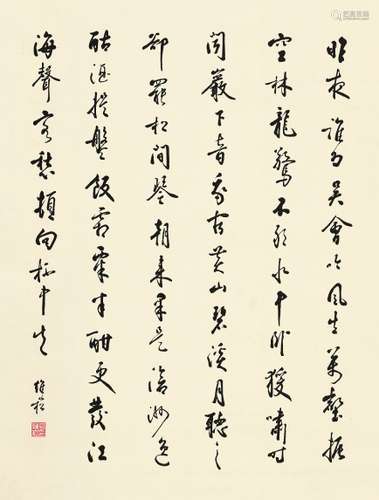 昨夜誰为吳會吟風生萬壑振
空林龍驚不敢水中臥猨嘯时
聞巖下音我宿黃山碧溪月聽之
卻罷松間琴朝来果是滄洲逸
酤酒提盤飯霜栗半酣更發江
海聲客愁頓向杯中失
維崧